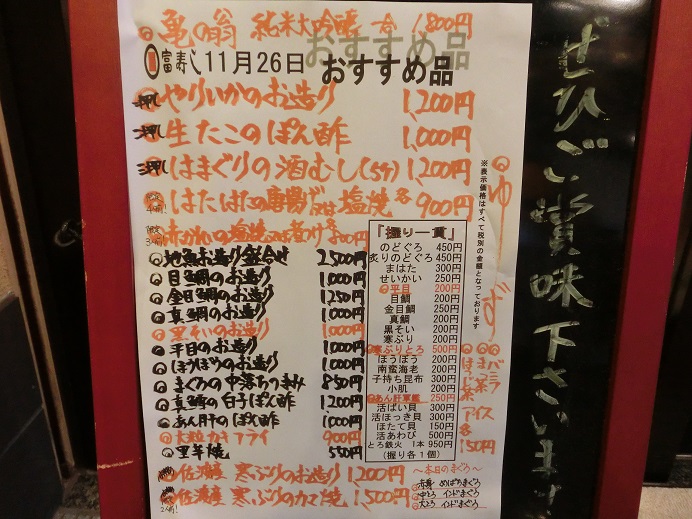 亀の翁 純米大吟醸 一合 1,800円
富寿し 11月26日 おすすめ品
おすすめ品
押し やりいかのお造り 1,200円
押し 生たこのぽん酢 1,000円
押し はまぐりの酒むし(5ケ) 1,200円
はたはたの唐揚げ又は塩焼 各900円
赤がれいの塩焼
地魚お造り盛合せ 2,500円
目鯛のお造り 1,000円
金目鯛のお造り 1,250円
真鯛のお造り 1,000円
黒そいのお造り 1,000円
平目のお造り 1,000円
ほうぼうのお造り 1,000円
まぐろの中落ちつまみ 850円
真鱈の白子ぽん酢 1,200円
あん肝のぽん酢 1,000円
大粒カキフライ 900円
里芋焼 550円
佐渡産 寒ぶりのお造り 1,200円
佐渡産 寒ぶりのカマ焼 1,500円
「握り一貫」
のどぐろ 450円
炙りのどぐろ 450円
まはた 300円
せいかい 250円
平目 200円
目鯛 200円
金目鯛 250円
真鯛 200円
黒そい 200円
寒ぶり 200円
寒ぶりとろ 500円
ほうぼう 200円
南蛮海老 200円
子持ち昆布 300円
小肌 200円
あん肝軍艦 250円
活ばい貝 300円
活ほっき貝 300円
ほたて貝 150円
活あわび 500円
とろ鉄火 1本 950円
(握り各1個)
※表示価格はすべて税別の金額となっております
ゆず
バニラ
アイス
各
150円
〜本日のまぐろ〜
赤身 めばちまぐろ
中とろ インドまぐろ
大とろ インドまぐろ
ぜひご賞味下さいませ